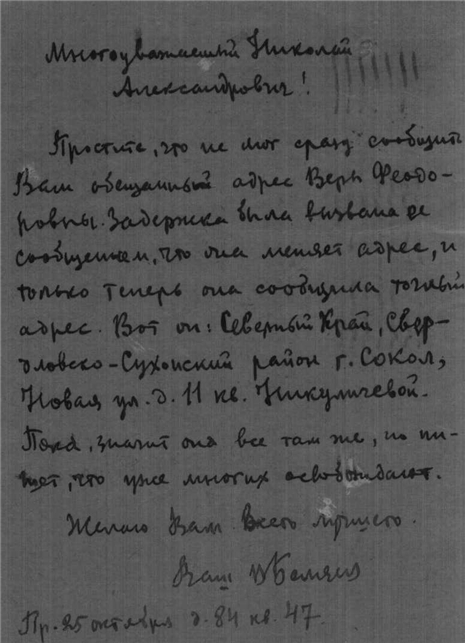 Многоуважаемый Николай
Александрович!
Простите, что не мог сразу сообщить
Вам обещанный адрес Веры Феодо-
ровны. Задержка была вызвана ее
сообщением, что она меняет адрес, и
только теперь она сообщила точный
адрес. Вот он: Северный Край, Свер-
дловско-Сухонский район г. Сокол,
Новая ул. д. 11 кв. Никуличевой.
Пока, значит она все там же, но пи-
шет, что уже многих освобождают.
Желаю Вам Всего лучшего.
Ваш
Пр. 25 октября д. 84 кв. 47.